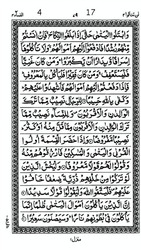 4 17
وَابْتَلُوا الْيَتٰمٰى حَتّٰۤى اِذَا بَلَغُوا النِّكَاحَ فَاِنْ اٰنَسْتُمْ
مِّنْهُمْ رُشْدًا فَادْفَعُوْۤا اِلَيْهِمْ اَمْوَالَهُمْ وَلَا تَاْكُلُوْهَاۤ
اِسْرَافًا وَّبِدَارًا اَنْ يَّكْبَرُوْا وَمَنْ كَانَ غَنِيًّا
فَلْيَسْتَعْفِفْ وَمَنْ كَانَ فَقِيْرًا فَلْيَاْكُلْ بِالْمَعْرُوْفِ
فَاِذَا دَفَعْتُمْ اِلَيْهِمْ اَمْوَالَهُمْ فَاَشْهِدُوْا عَلَيْهِمْ
وَكَفٰى بِاللّٰهِ حَسِيْبًا لِلرِّجَالِ نَصِيْبٌ مِّمَّا
تَرَكَ الْوَالِدٰنِ وَالْاَقْرَبُوْنَ وَلِلنِّسَآءِ نَصِيْبٌ مِّمَّا
تَرَكَ الْوَالِدٰنِ وَالْاَقْرَبُوْنَ مِمَّا قَلَّ مِنْهُ اَوْ كَثُرَ
نَصِيْبًا مَّفْرُوْضًا وَاِذَا حَضَرَ الْقِسْمَةَ اُولُوا
الْقُرْبٰى وَالْيَتٰمٰى وَالْمَسٰكِيْنُ فَارْزُقُوْهُمْ مِّنْهُ
وَقُوْلُوْا لَهُمْ قَوْلًا مَّعْرُوْفًا وَلْيَخْشَ الَّذِيْنَ لَوْ
تَرَكُوْا مِنْ خَلْفِهِمْ ذُرِّيَّةً ضِعٰفًا خَافُوْا
عَلَيْهِمْ فَلْيَتَّقُوا اللّٰهَ وَلْيَقُوْلُوْا قَوْلًا سَدِيْدًا
اِنَّ الَّذِيْنَ يَاْكُلُوْنَ اَمْوَالَ الْيَتٰمٰى ظُلْمًا اِنَّمَا
يَاْكُلُوْنَ فِيْ بُطُوْنِهِمْ نَارًا وَسَيَصْلَوْنَ سَعِيْرًا